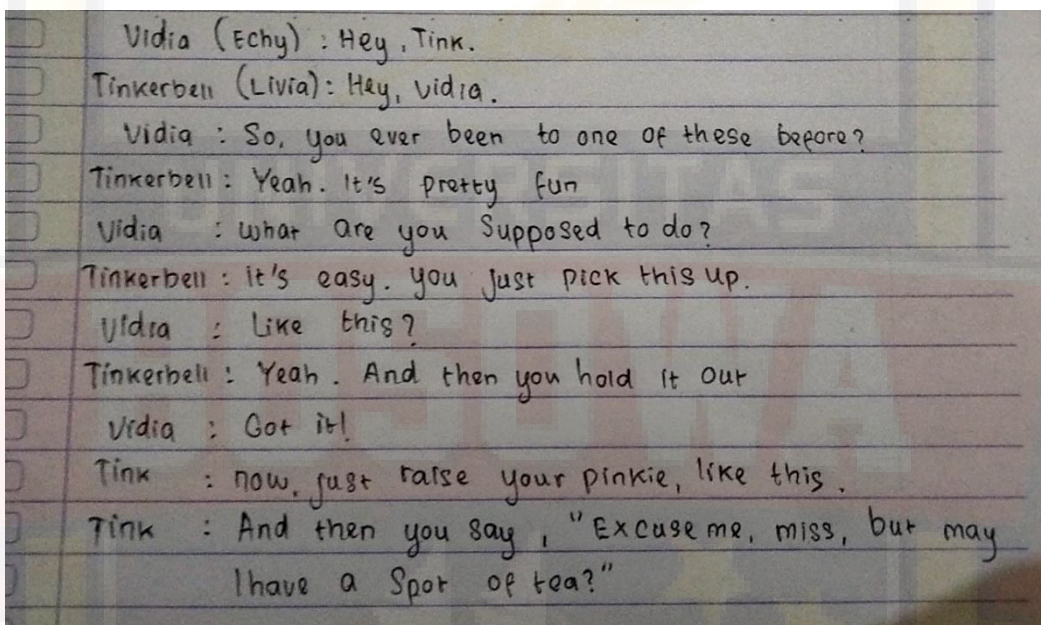 Vidia (Echy) : Hey, Tink.
Tinkerbell (Livia) : Hey, Vidia.
Vidia : So, you ever been to one of these before?
Tinkerbell : Yeah. It's pretty fun
Vidia : what are you supposed to do?
Tinkerbell : it's easy. you just pick this up.
Vidia : Like this?
Tinkerbell : Yeah. And then you hold it out
Vidia : Got it!
Tink : now, just raise your pinkie, like this.
Tink : And then you say, "Excuse me, miss, but may
I have a Spot of tea?"
UNIVERSITAS
BOSOWA